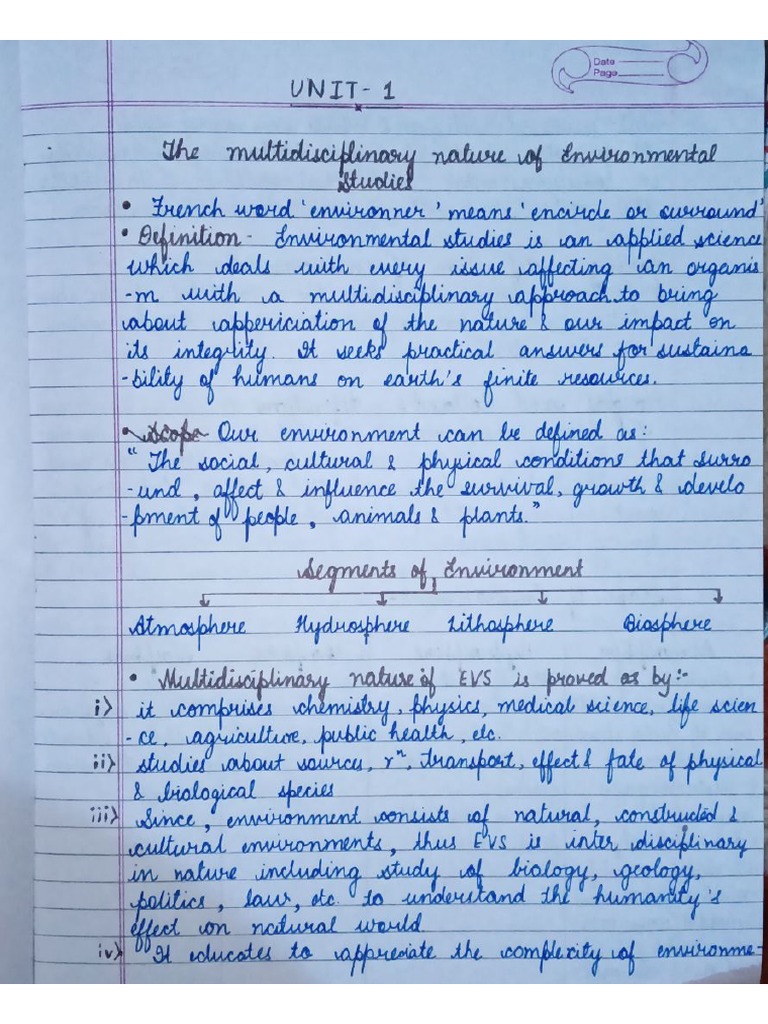 Date
Page
UNIT-1
The multidisciplinary nature of Environmental
Studies
• French word 'environner' means 'encircle or surround'
• Definition - Environmental studies is an applied science
which deals with every issue affecting an organis
-m with a multidisciplinary approach to bring
about appericiation of the nature & our impact on
its integrity. It seeks practical answers for sustaina
-bility of humans on earth's finite resources.
• Scope Our environment can be defined as:
“The social, cultural & physical conditions that surro
-und, affect & influence the survival, growth & develo
-pment of people, animals & plants.”
Segments of Environment
Atmosphere Hydrosphere Lithosphere Biosphere
• Multidisciplinary nature of EVS is proved as by:-
i) it comprises chemistry, physics, medical science, life scien
-ce, agriculture, public health, etc.
ii) studies about sources, rⁿ, transport, effect & fate of physical
& biological species
iii) Since, environment consists of natural, constructed &
cultural environments, thus EVS is inter disciplinary
in nature including study of biology, geology,
politics, law, etc. to understand the humanity's
effect on natural world
iv) It educates to appreciate the complexity of environme-